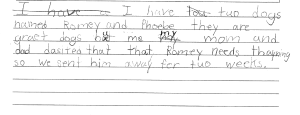 I have two dogs
named Romey and Phoebe they are
great dogs but me my mom and
dad dasites that that Romey needs
so we sent him away for two weeks.